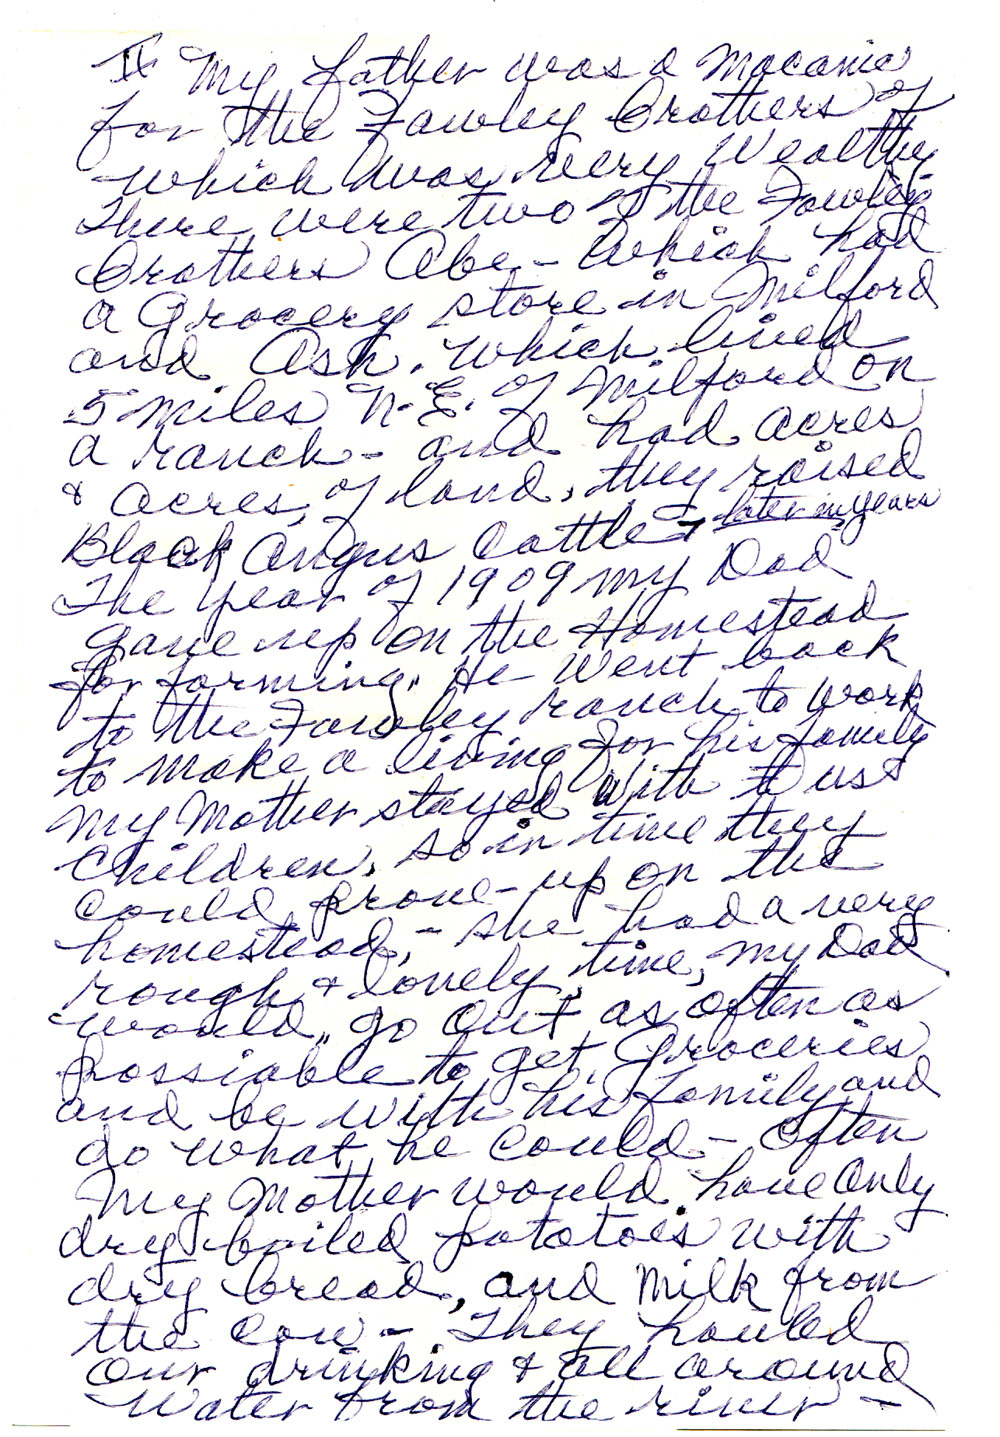 II My father was a Macanic
for the Fawley Brothers of
which was very Wealthy
There were two of the Fawley
Brothers Abe - which had
a Grocery store in Milford
and Ash. which lived
5 miles N.E. of Milford on
a ranch - and had acres
& acres, of land, they raised
Black Angus Cattle later in years
The year of 1909 my Dad
gave up on the Homestead
for farming. He went back
to the Fawley ranch to work
to make a living for his family
My Mother stayed with us
children, so in time they
could prove-up on the
homestead, - she had a very
rough & lonely time, my Dad
would, go out as often as
possiable to get Groceries
and be with his family, and
do what he could - often
My Mother would have only
dry boiled potatoes with
dry bread, and Milk from
the cow - They hauled
our drinking & all around
water from the river -